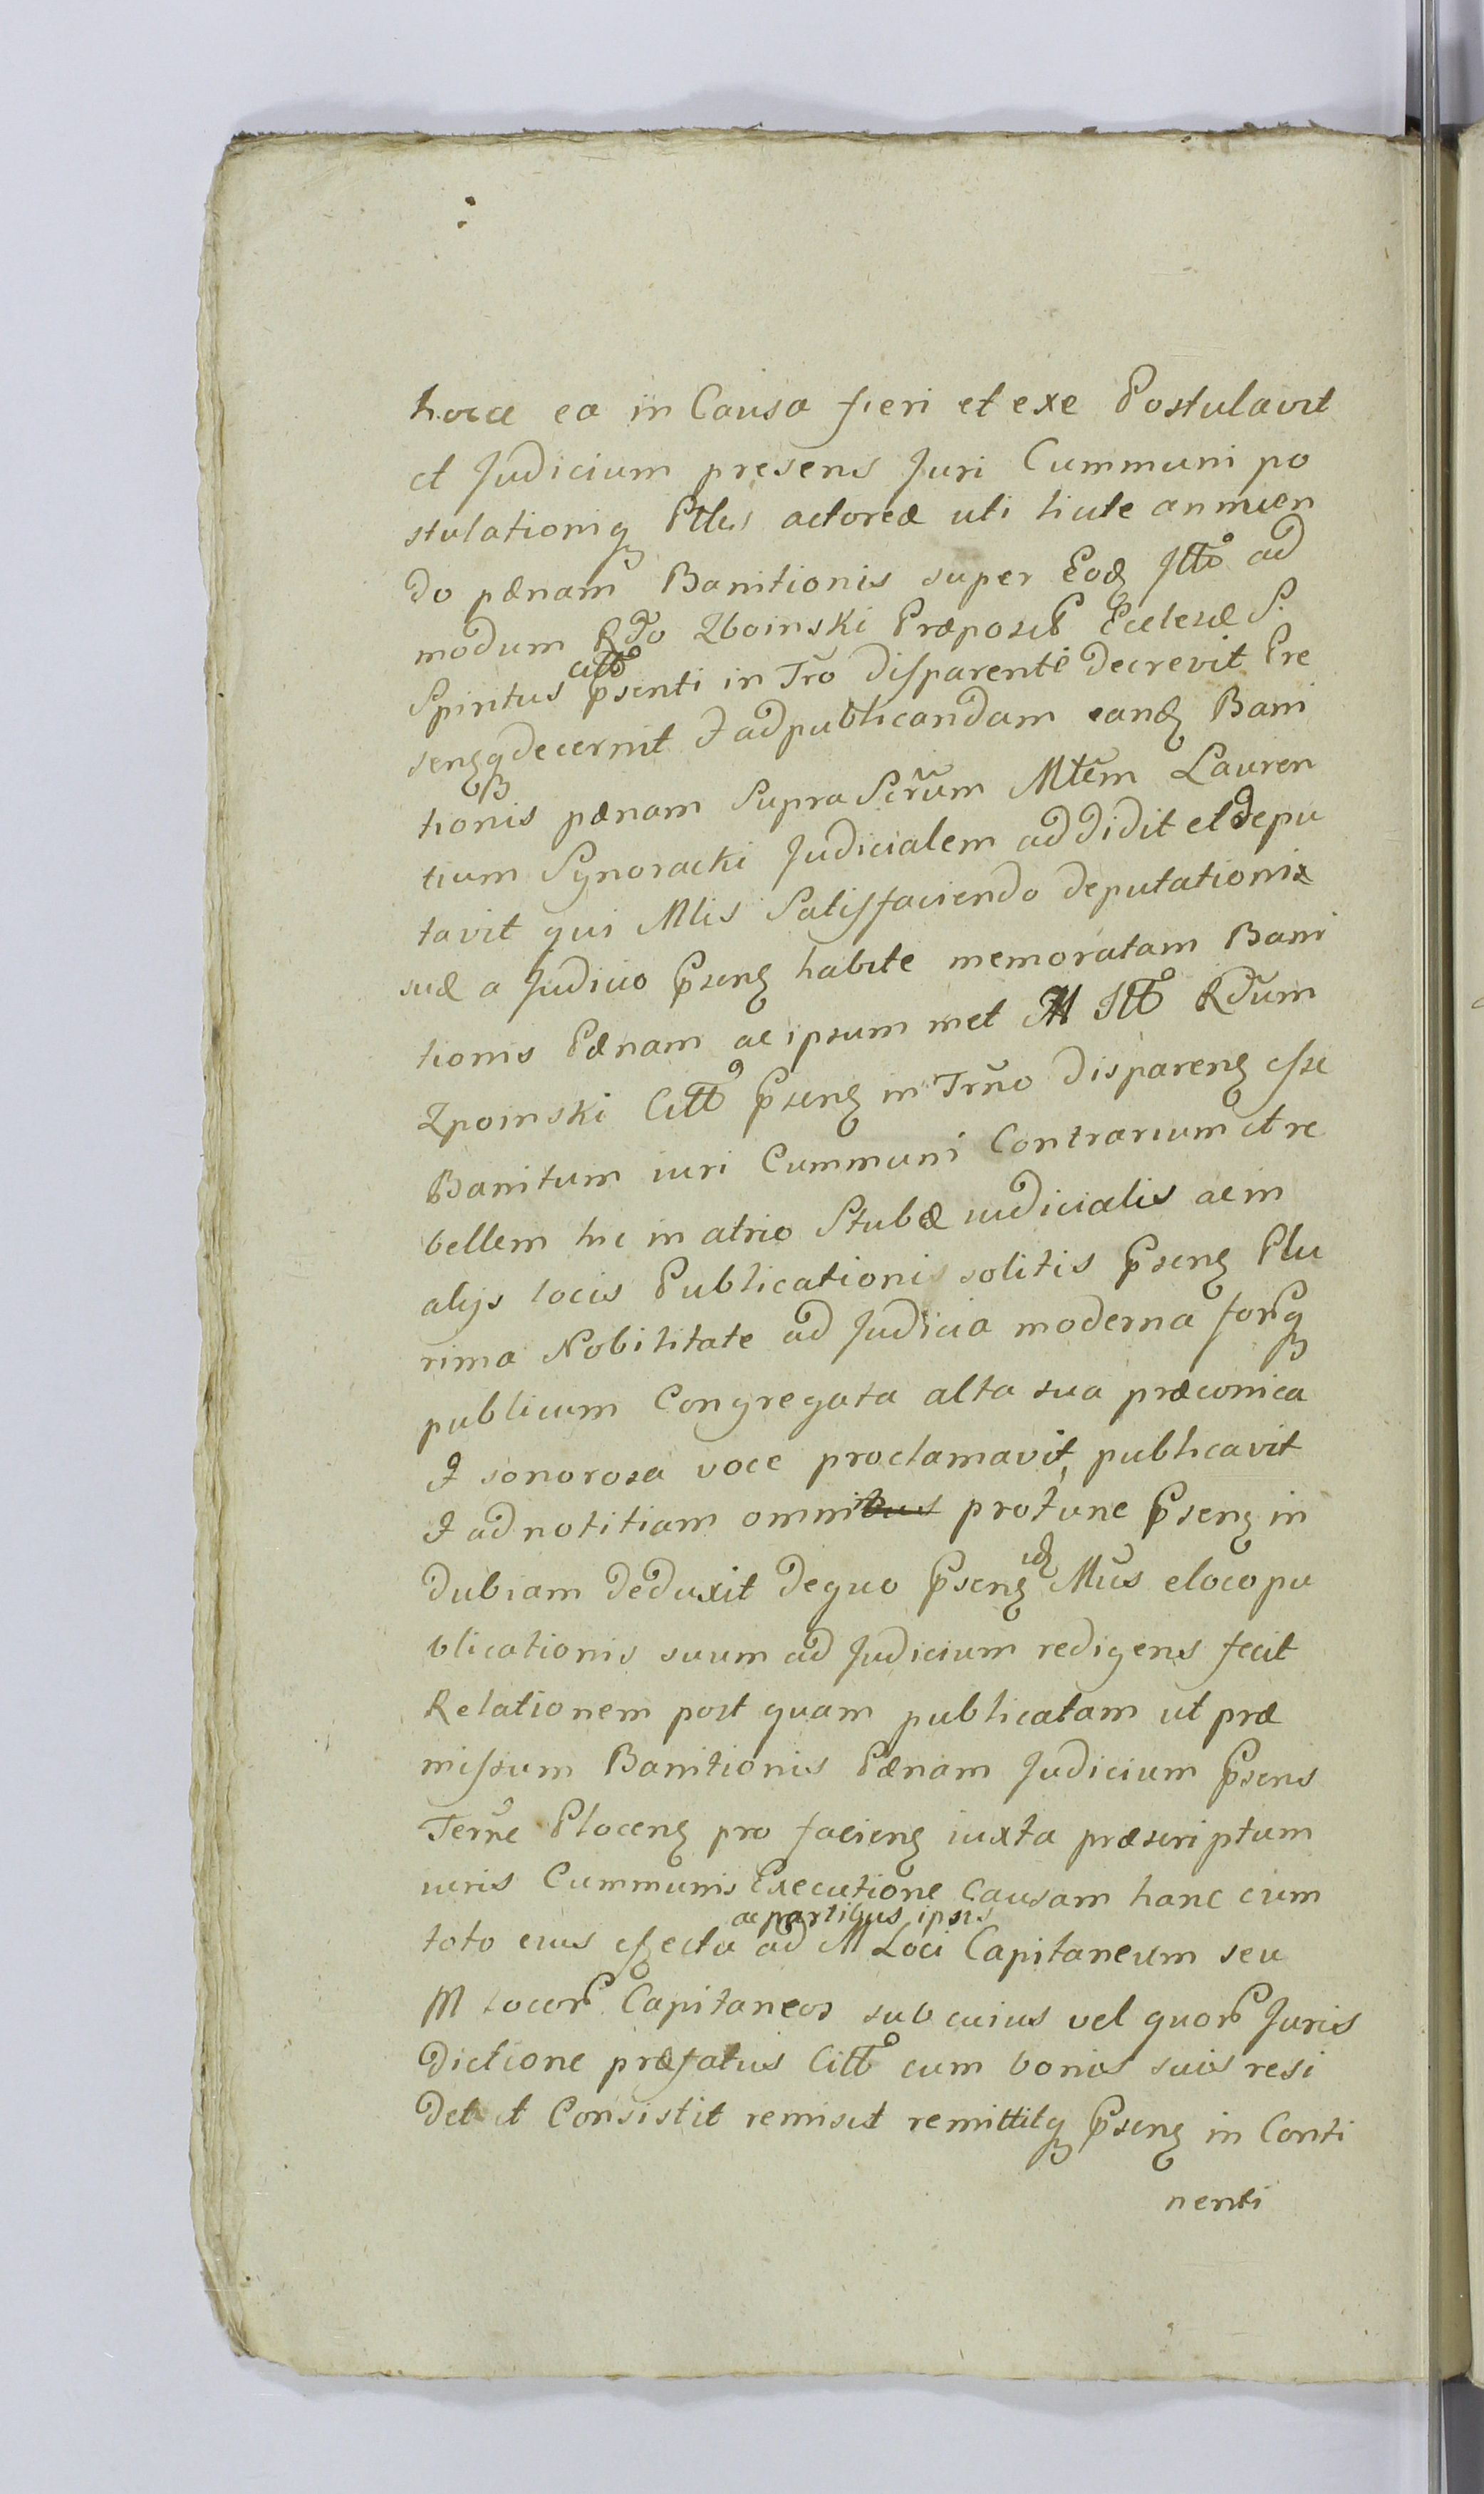 hocce ea in Causa fieri et exe Postulavit
et Judicium presens Juri Cummuni po
stulationiq Pttis actoreæ uti liute annuen
do pænam Banitionis super Eodę Jtto ad
modum Rdo Zboinski Præposito Ecclesiæ S.
Spiritus citto psenti in Tro disparenti decrevit Pre
senęq decernit & ad publicandam eandę Bani
tionis pænam Supra Scrum Mtem Lauren
tium Synoracki Judicialem addidit et depu
tavit qui Mlis Satisfaciendo deputationi
suæ a Judicio pseną habite memoratam Bani
tionis Pænam ac ipsum met Jtto Rdum
Zpoinski Citto pseną in Trno dispareną esse
Banitum iuri Cummuni Contrarium et re
bellem hic in atrio Stubæ iudicialis ac in
alijs locis Publicationis solitis pseną Plu
rima Nobilitate ad Judicia moderna forq
publicum Congregata alta sua præconica
& sonorosa voce proclamavit, publicavit
& ad notitiam omni protunc pseną in
dubiam deduxit dequo pseną idę Mus eloco pu
blicationis suum ad Judicium redigens fecit
Relationem post quam publicatam ut præ
missum Banitionis Pænam Judicium psens
Terre Ploceną pro facieną iuxta præscriptum
iuris Cummunis Executione Causam hanc cum
toto eius effectu ac partibus ipsis ad M Loci Capitaneum seu
M locor Capitaneos sub cuius vel quor Juris
dictione præfatus Citto cum bonis suis resi
det et Consistit remisit remittitq pseną in Conti
nenti